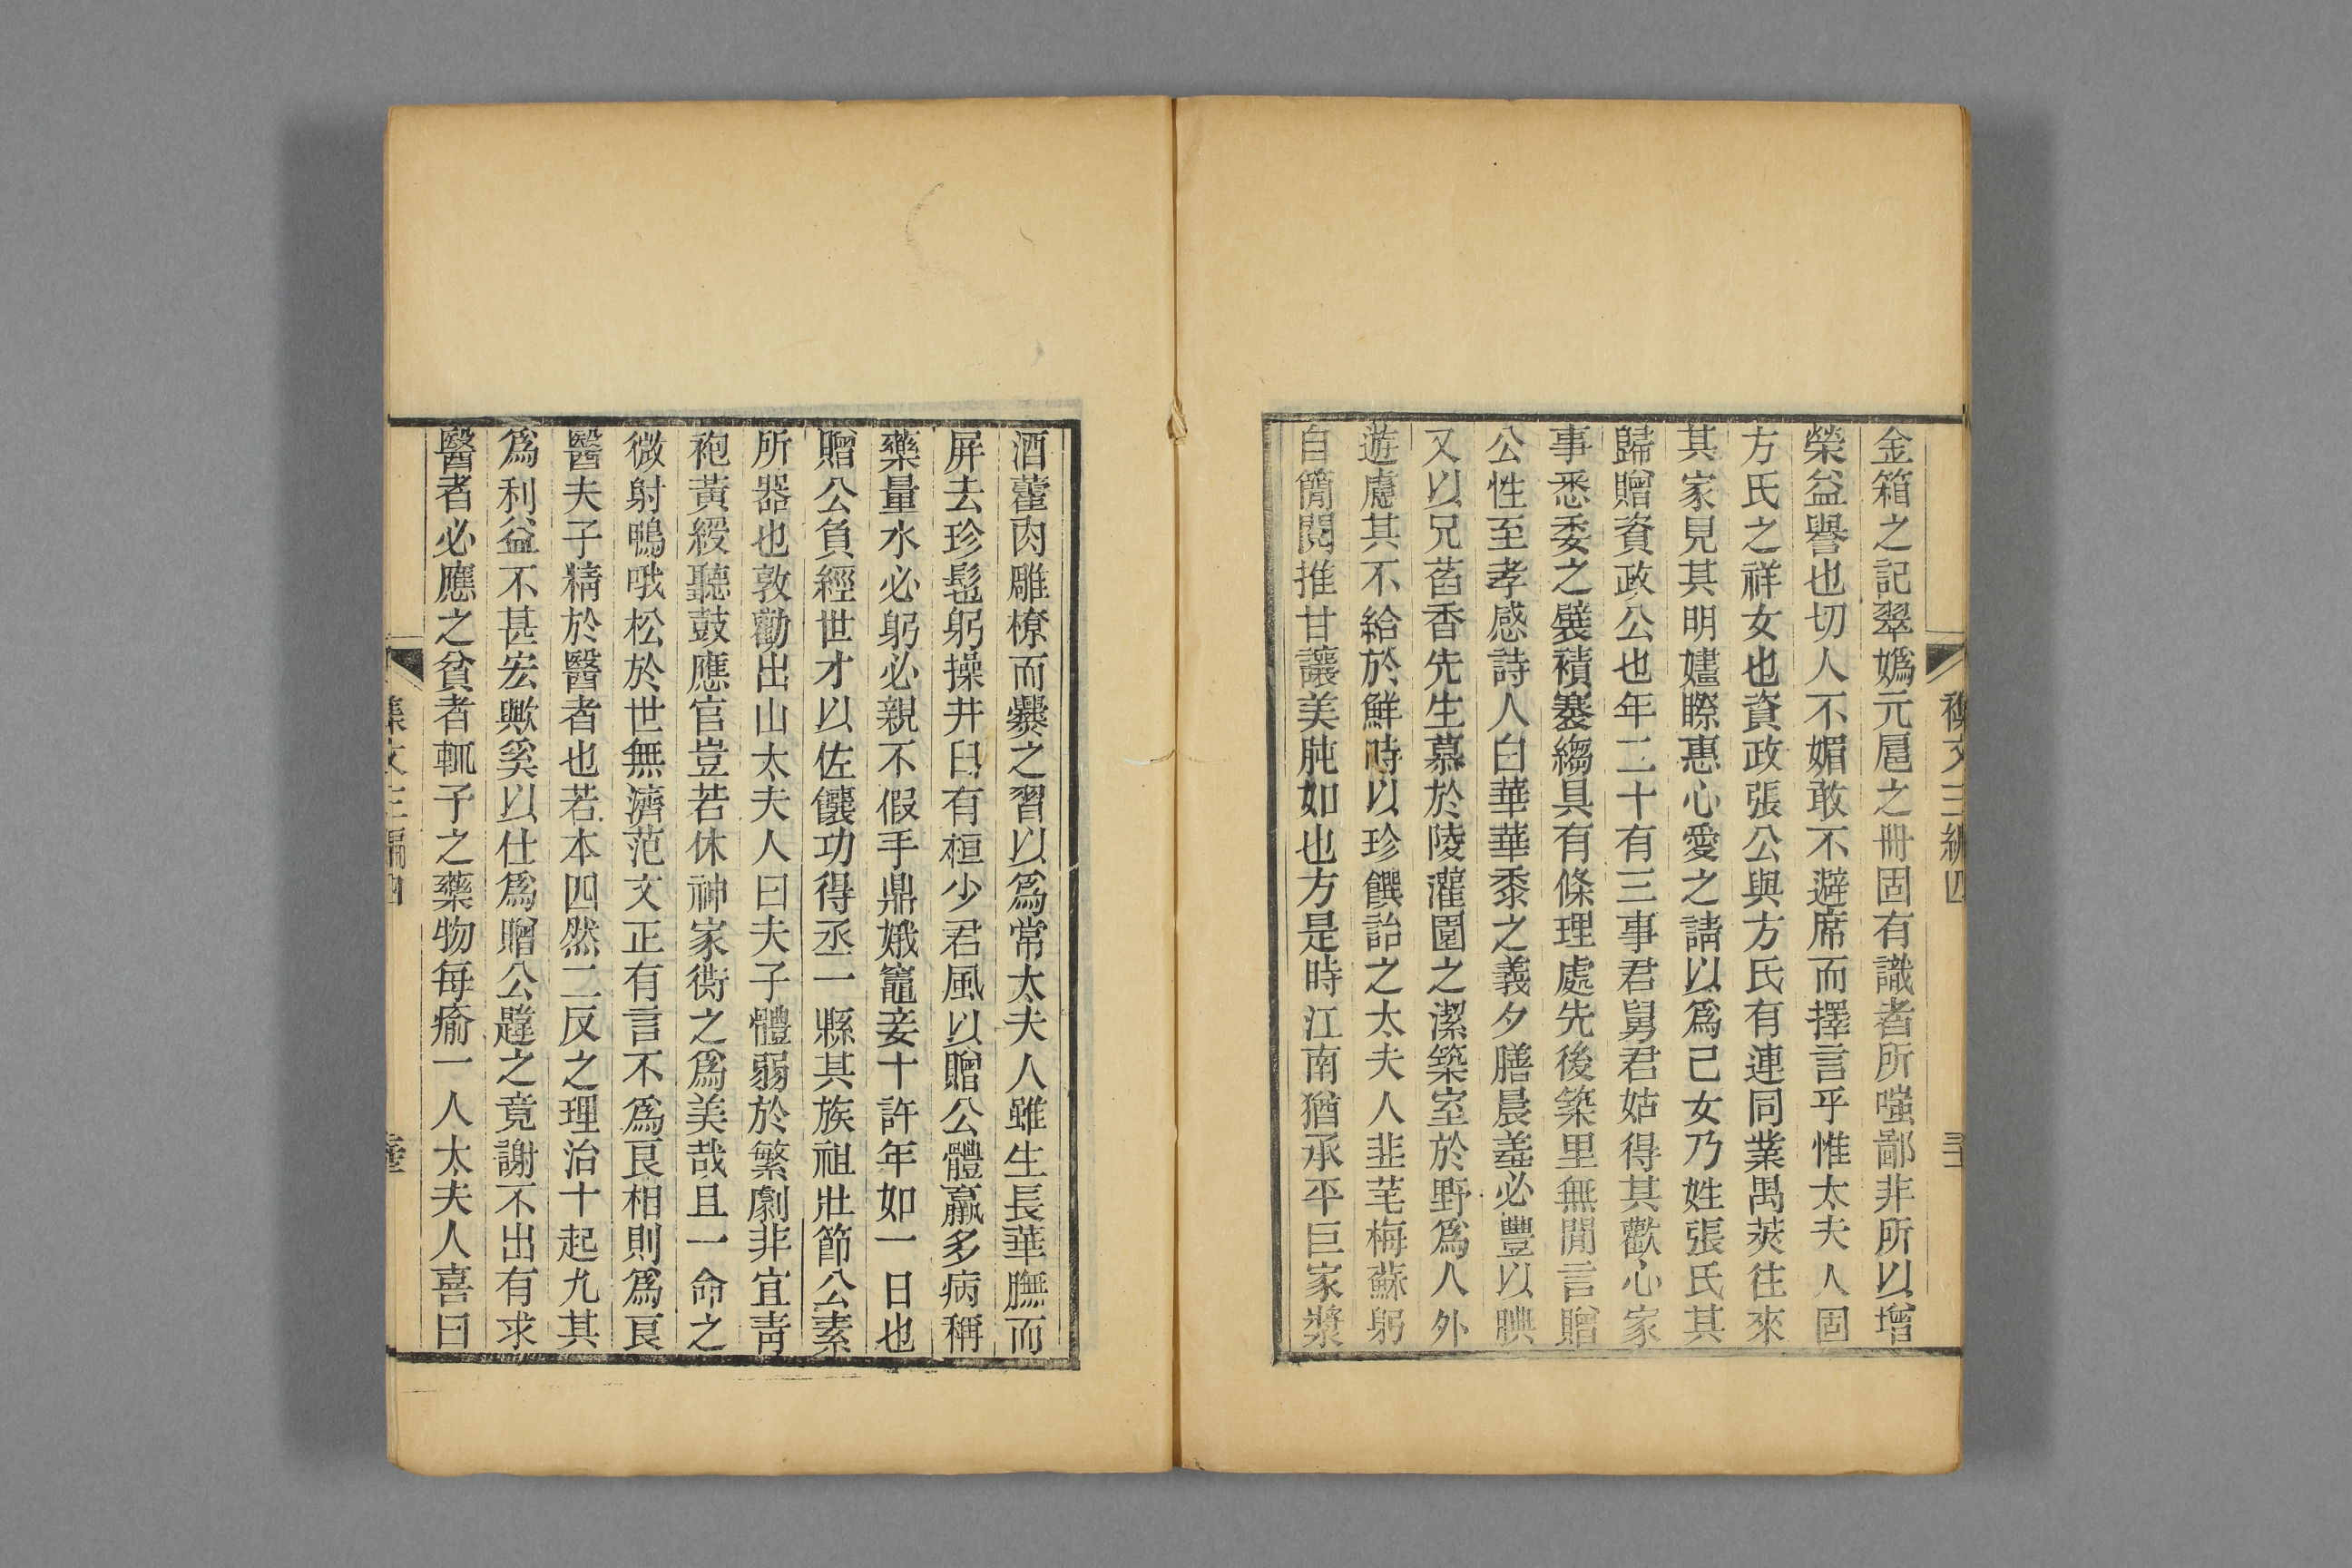 金箱之記翠嬀元扈之冊固有識者所嗤鄙非所以增
榮益譽也切人不媚敢不避席而擇言乎惟太夫人固
方氏之祥女也資政張公與方氏有連同業禺莢往來
其家見其明嫿瞭惠心愛之請以爲己女乃姓張氏其
歸贈資政公也年二十有三事君舅君姑得其歡心家
事悉委之襞襀褰縐具有條理處先後築里無閒言贈
公性至孝感詩人白華華黍之義夕膳晨羞必豐以腆
又以兄萏香先生慕於陵灌園之潔築室於野爲人外
遊慮其不給於鮮時以珍饌詒之太夫人韭芼梅蘇躬
自簡閱推甘讓美肫如也方是時江南猶承平巨家漿
酒藿肉雕橑而爨之習以爲常太夫人雖生長華膴而
屏去珍髢躬操井臼有桓少君風以贈公體羸多病稱
藥量水必躬必親不假手鼎娥竈妾十許年如一日也
贈公負經世才以佐饟功得丞一縣其族祖壯節公素
所器也敦勸出山太夫人曰夫子體弱於繁劇非宜靑
袍黃綬聽鼓應官豈若休神家衖之爲美哉且一命之
微射鴨哦松於世無濟范文正有言不爲良相則爲良
醫夫子精於醫者也若本四然二反之理治十起九其
爲利益不甚宏歟奚以仕爲贈公韙之竟謝不出有求
醫者必應之貧者輒予之藥物每瘉一人太夫人喜曰